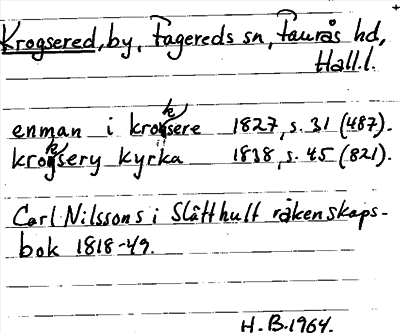 Krogsered, by, Fagereds sn, Faurås hd,
Hall.l.
enman i kroksere 1827, s. 31 (487).
kroksery kyrka 1838, s. 45 (821).
Carl Nilssons i Slätthult räkenskaps-
bok 1818-49.
H.B. 1964.